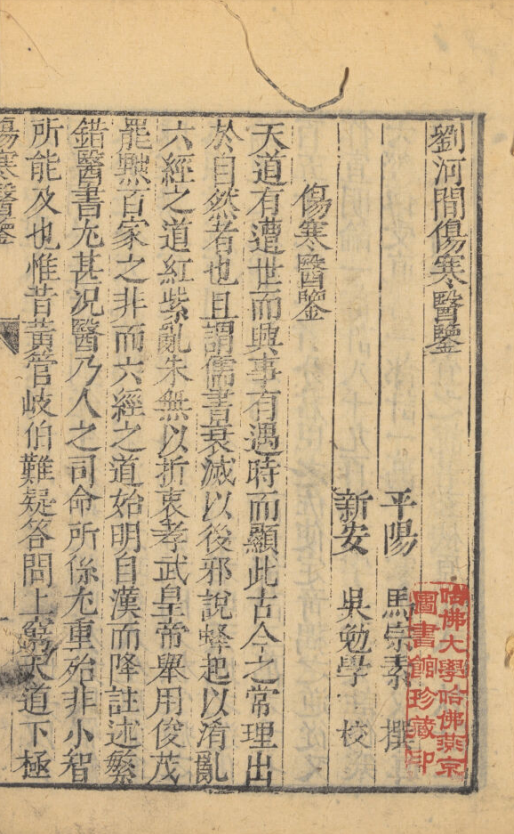 劉河間傷寒醫鑒
平陽 馬宗素 撰
新安 吳勉學 校
傷寒醫鑒
天道有遭世而興事有遇時而顯此古今之常理出
於自然者也且謂儒書衰滅以後邪說蜂起以淆亂
六經之道紅紫亂朱無以折衷孝武皇帝舉用俊茂
罷黜百家之非而六經之道始明自漢而降註述繁
錯醫書尤甚況醫乃人之司命所係尤重殆非小智
所能及也惟昔黃管岐伯難疑答問上窮天道下極
傷寒醫鑒
哈佛大學哈佛燕京
圖書館珍藏印